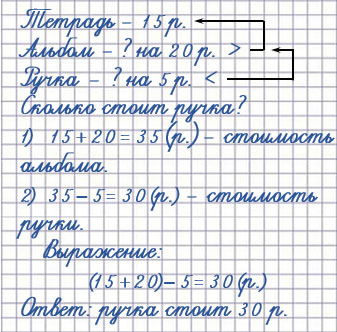 Тетрадь – 15 р.
Альбом – ? на 20 р. >
Ручка – ? на 5 р. <
Сколько стоит ручка?
1) 15+20=35(р.) – стоимость
альбома.
2) 35–5=30(р.) – стоимость
ручки.
Выражение:
(15+20)–5=30(р.)
Ответ: ручка стоит 30 р.